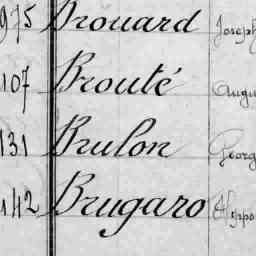 975 Brouard Joseph
107 Brouté Augu
131 Brulon Georg
142 Brugaro Hyppo